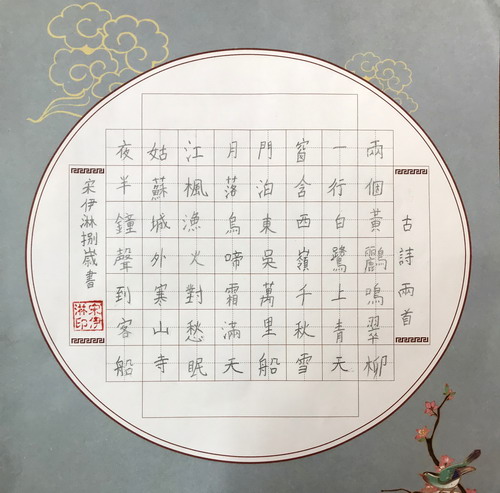 古詩兩首
兩個黃鸝鳴翠柳
一行白鷺上青天
窗含西嶺千秋雪
門泊東吳萬里船
月落烏啼霜滿天
江楓漁火對愁眠
姑蘇城外寒山寺
夜半鐘聲到客船
宋伊淋捌歲書
宋伊淋印